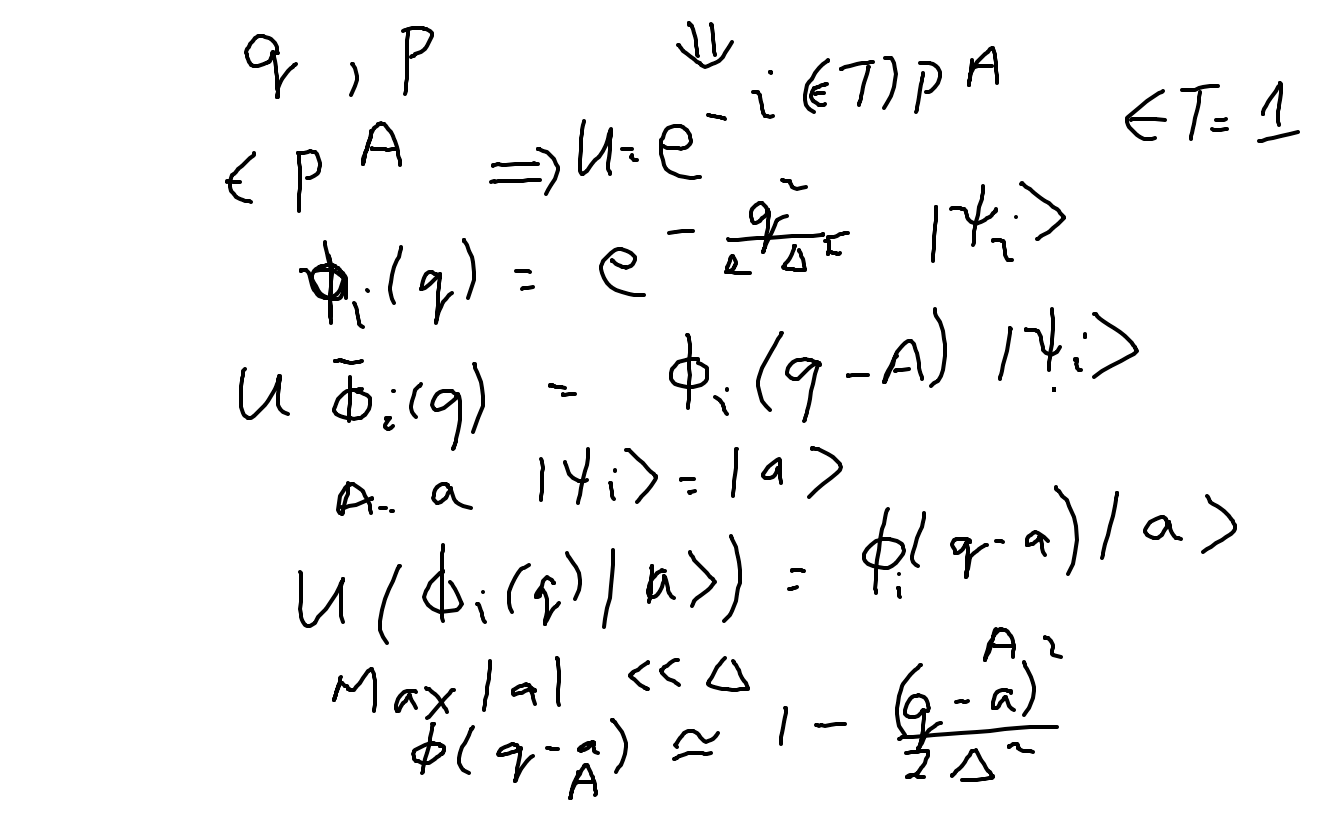 q , p ⇓
ϵ p A ⟹ U = e^{-i(ϵT)pA} ϵT = 1
ϕ_i(q) = e^{-q²/2Δ²} |ψ_i>
U ϕ̄_i(q) = ϕ_i(q-A) |ψ_i>
A = a |ψ_i> = |a>
U(ϕ_i(q)|a>) = ϕ_i(q-a)|a>
Max |a| << Δ A
ϕ(q-a) ≃ 1 - (q-a)²/2Δ²
A